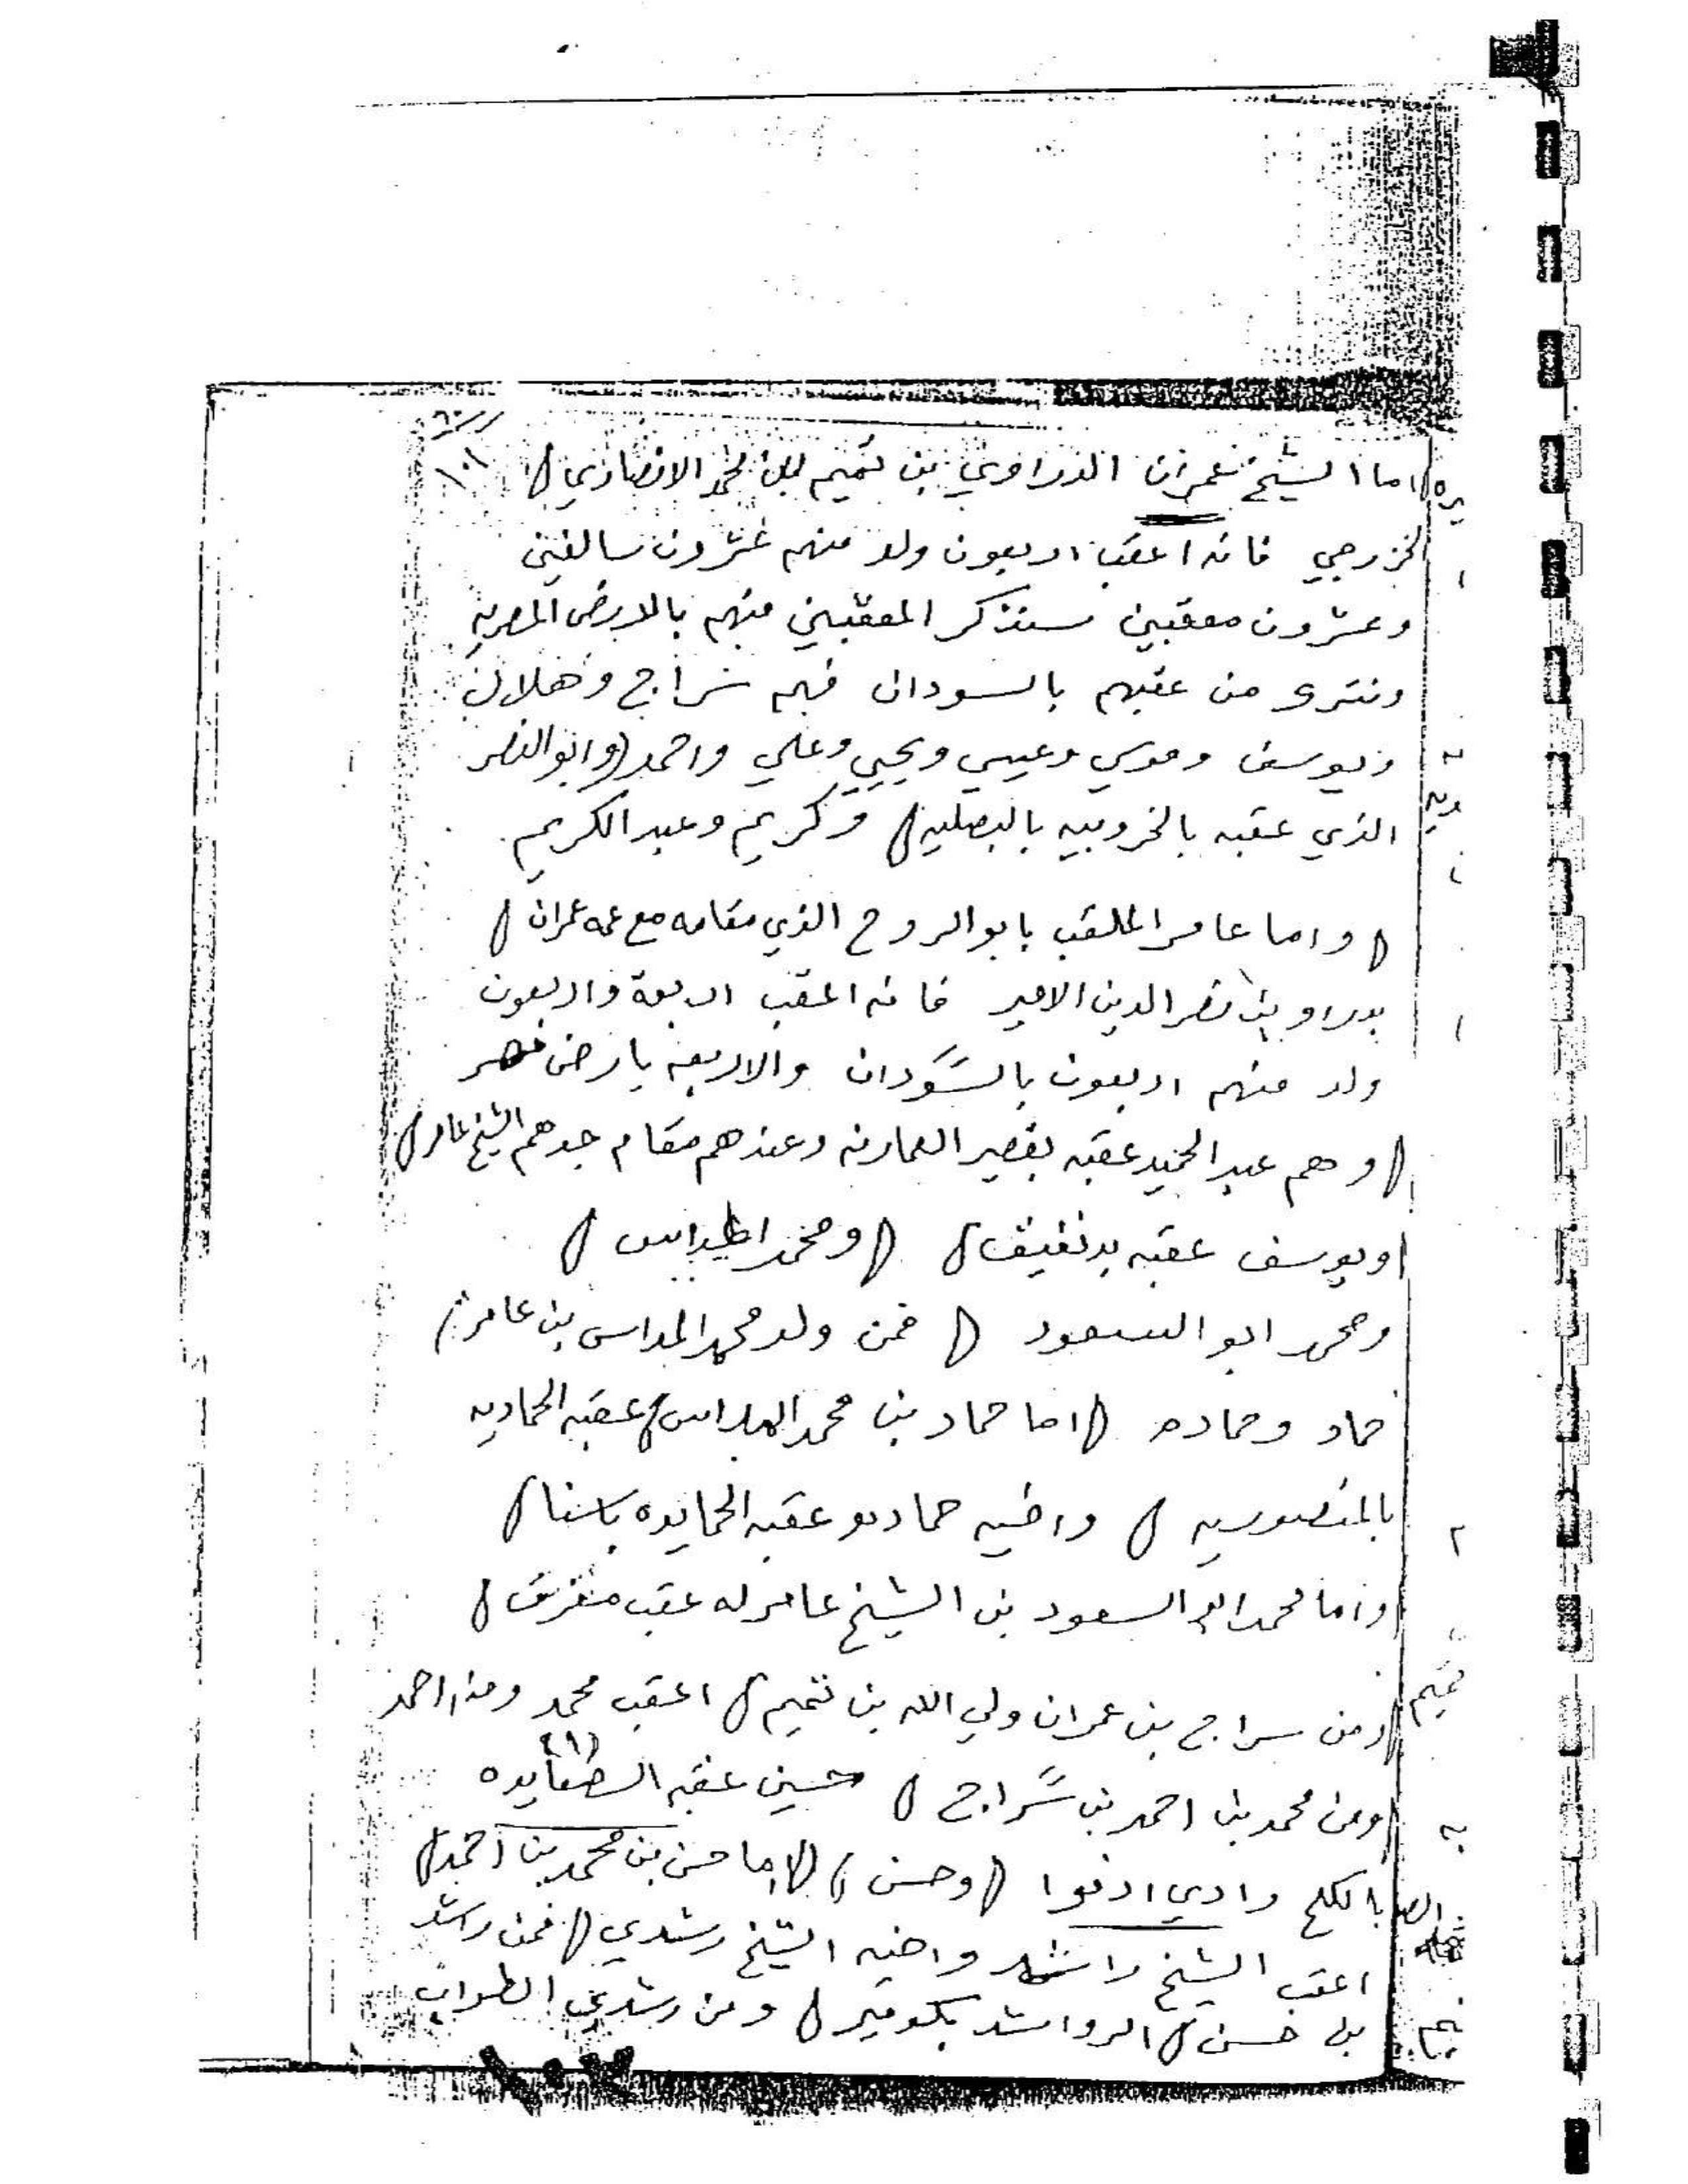 ١٠١
اما الشيخ عمران الدراوي بن تميم الانصاري
الخزرجي فانه اعقب اربعون ولد منهم عشرون سالفين
وعشرون معقبين سنذكر المعقبين منهم بالارض المصريه
ونترك من عقبهم بالسودان فهم سراج وهلال
ويوسف وموسي وعيسي ويحيي وعلي واحمد (وابو النصر
الذي عقبه بالخروبيه بالبصليه) وكريم وعبد الكريم
(واما عامر الملقب بابو الروح الذي مقامه مع عمه عمران)
بدراو بن نصر الدين الامير فانه اعقب اربعة واربعون
ولد منهم اربعون بالسودان والاربعه بارض مصر
(وهم عبد الحميد عقبه بقصير العمارنه وعندهم مقام جدهم الشيخ عامر)
ويوسف عقبه (ومحمد
ومحمد ابو السعود) فمن ولد محمد المداس بن عامر)
حماد وحماده (اما حماد بن محمد المداس) عقبه الحماديه
بالمنصوريه) واخيه حماده عقبه الحمايده باسنا)
واما محمد ابو السعود بن الشيخ عامر له عقب متفرق)
(ومن سراج بن عمران ولي الله بن تميم) اعقب محمد ومنه احمد
ومن محمد بن احمد بن سراج) حسين عقبه الصعايده (١)
بالكلح وادي ادفوا (وحسن) (اما حسن بن محمد بن احمد)
اعقب الشيخ راشد واخيه الشيخ رشدي (فمن راشد
بن حسن) الرواشد ومن رشدي الطواب